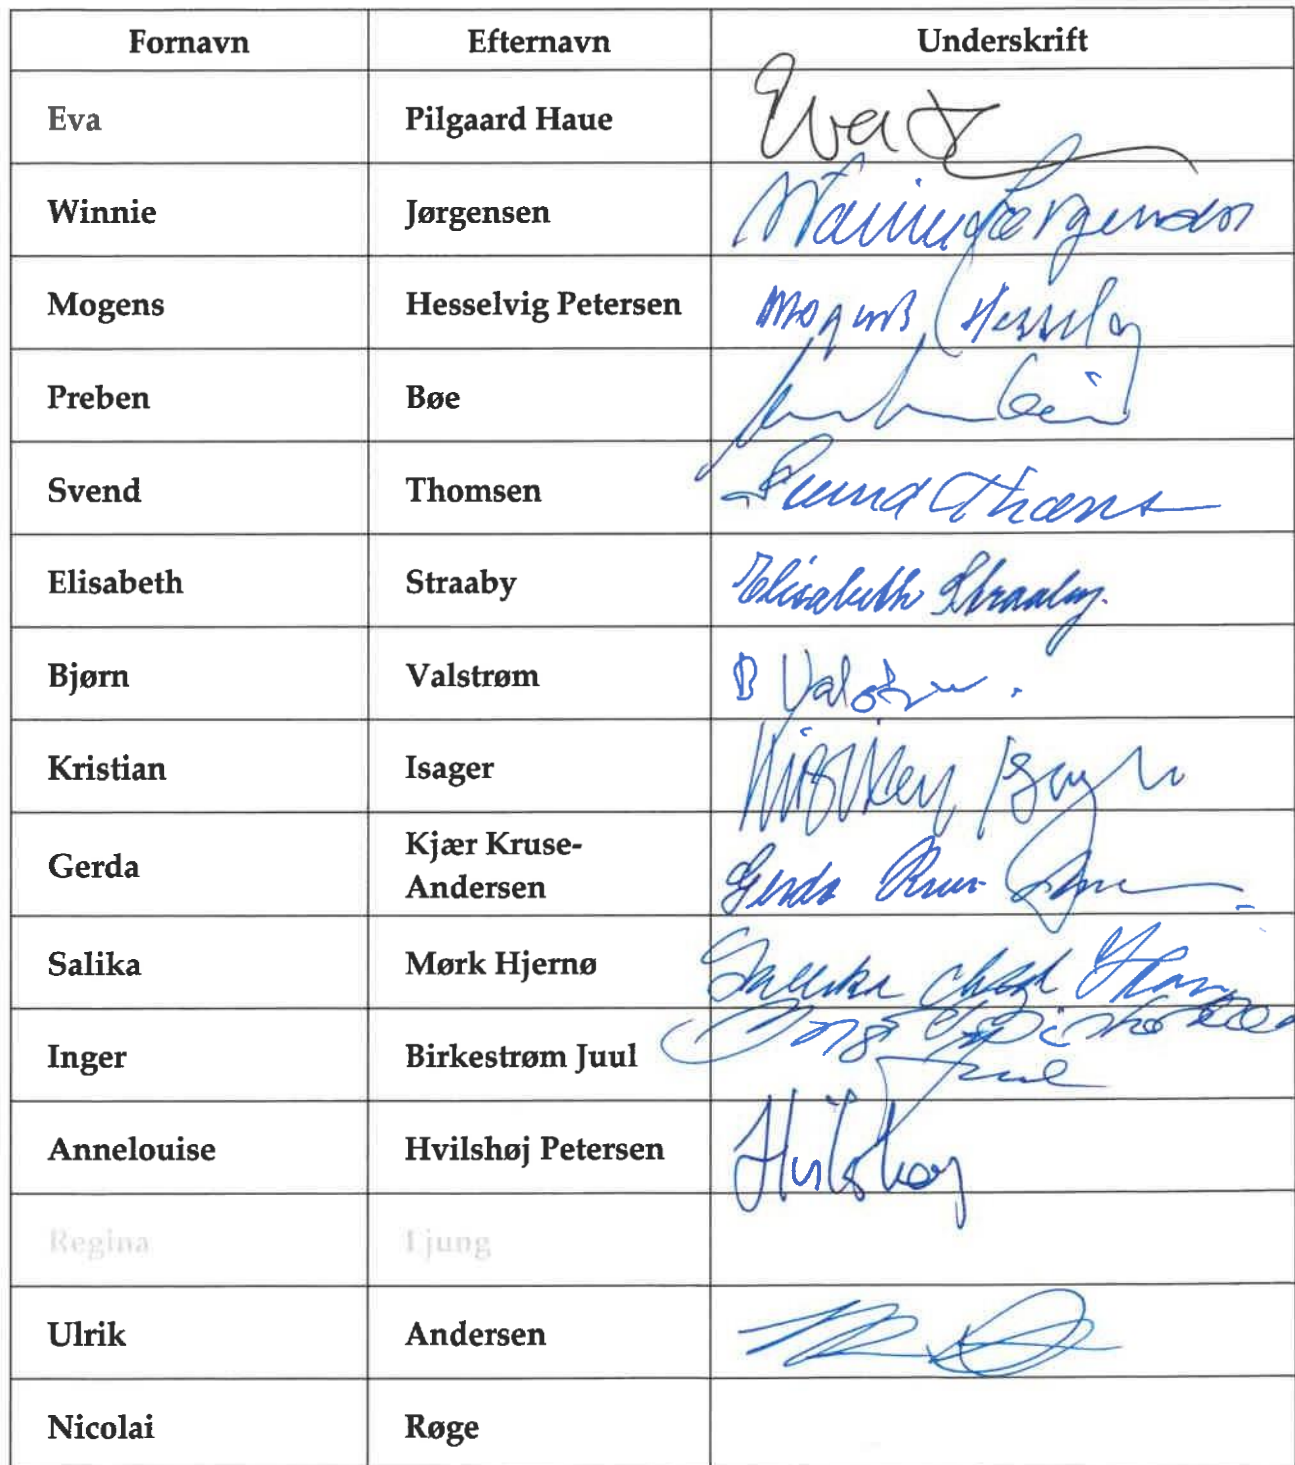 Fornavn Efternavn Underskrift
Eva Pilgaard Haue Eva
Winnie Jørgensen Winnie Jørgensen
Mogens Hesselvig Petersen Mogens Hesselvig
Preben Bøe
Svend Thomsen Svend Thoms
Elisabeth Straaby Elisabeth Straaby.
Bjørn Valstrøm B Valstrøm.
Kristian Isager Isager
Gerda Kjær Kruse-
Andersen Gerda Kruse
Salika Mørk Hjernø
Inger Birkestrøm Juul Inger Birkestrøm
Juul
Annelouise Hvilshøj Petersen Hvilshøj
Regina Ljung
Ulrik Andersen
Nicolai Røge